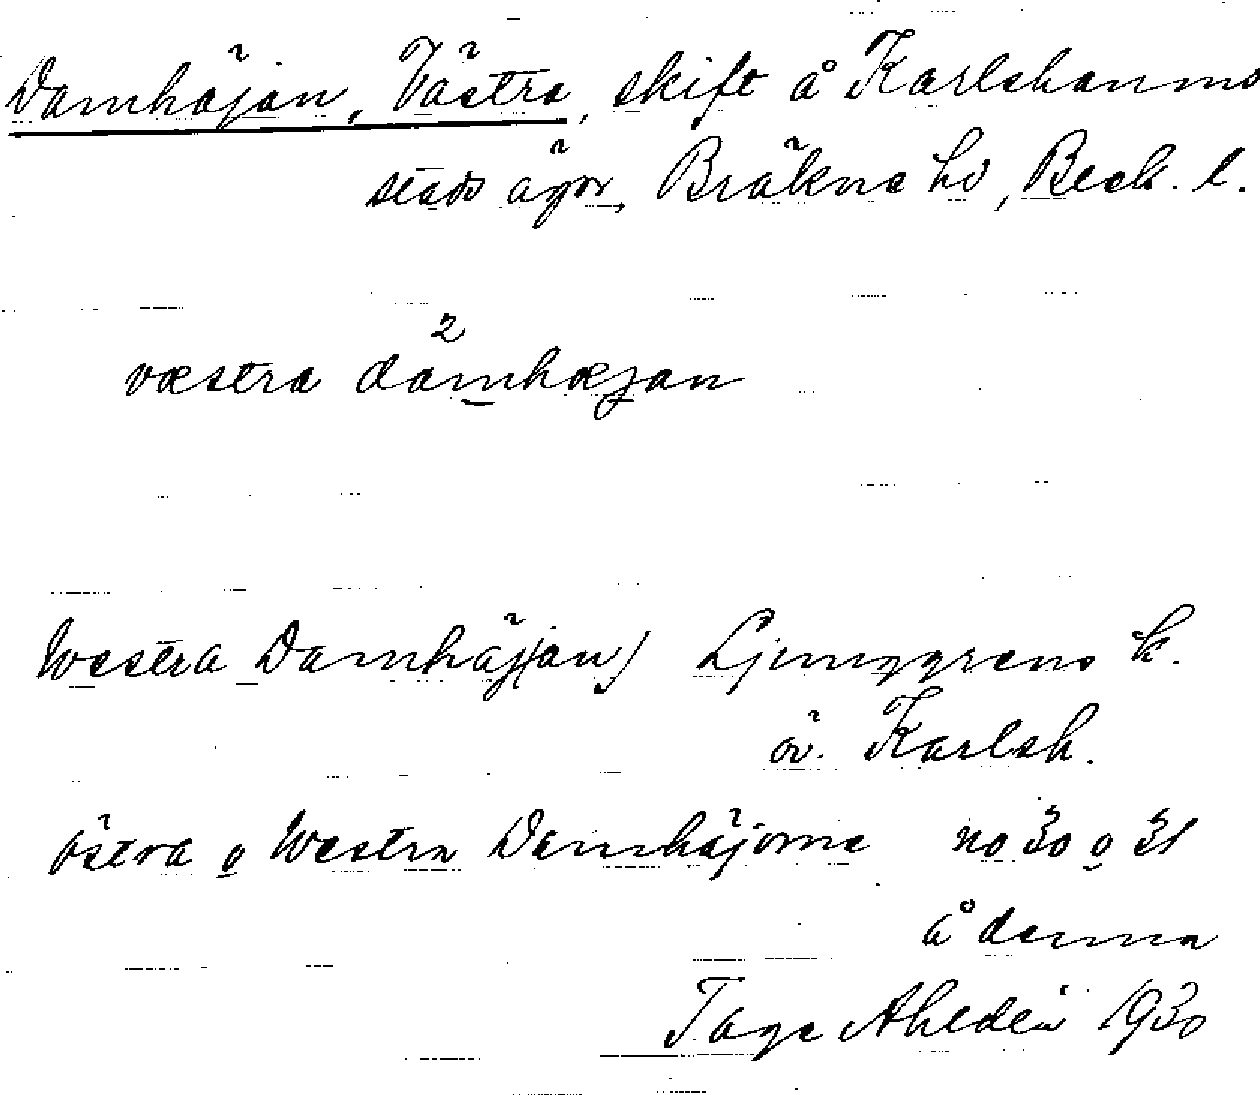 Damhäjan, Västra, skift å Karlshamns
stads ägor, Bräkne hd, Blek. l.
2
væstra damhæjan
Westra Damhäj(an) Ljunggrens k.
öv. Karlsh.
östra o Westra Damhäjorna no 30 o 31
å denna
Tage Ahldén 1930